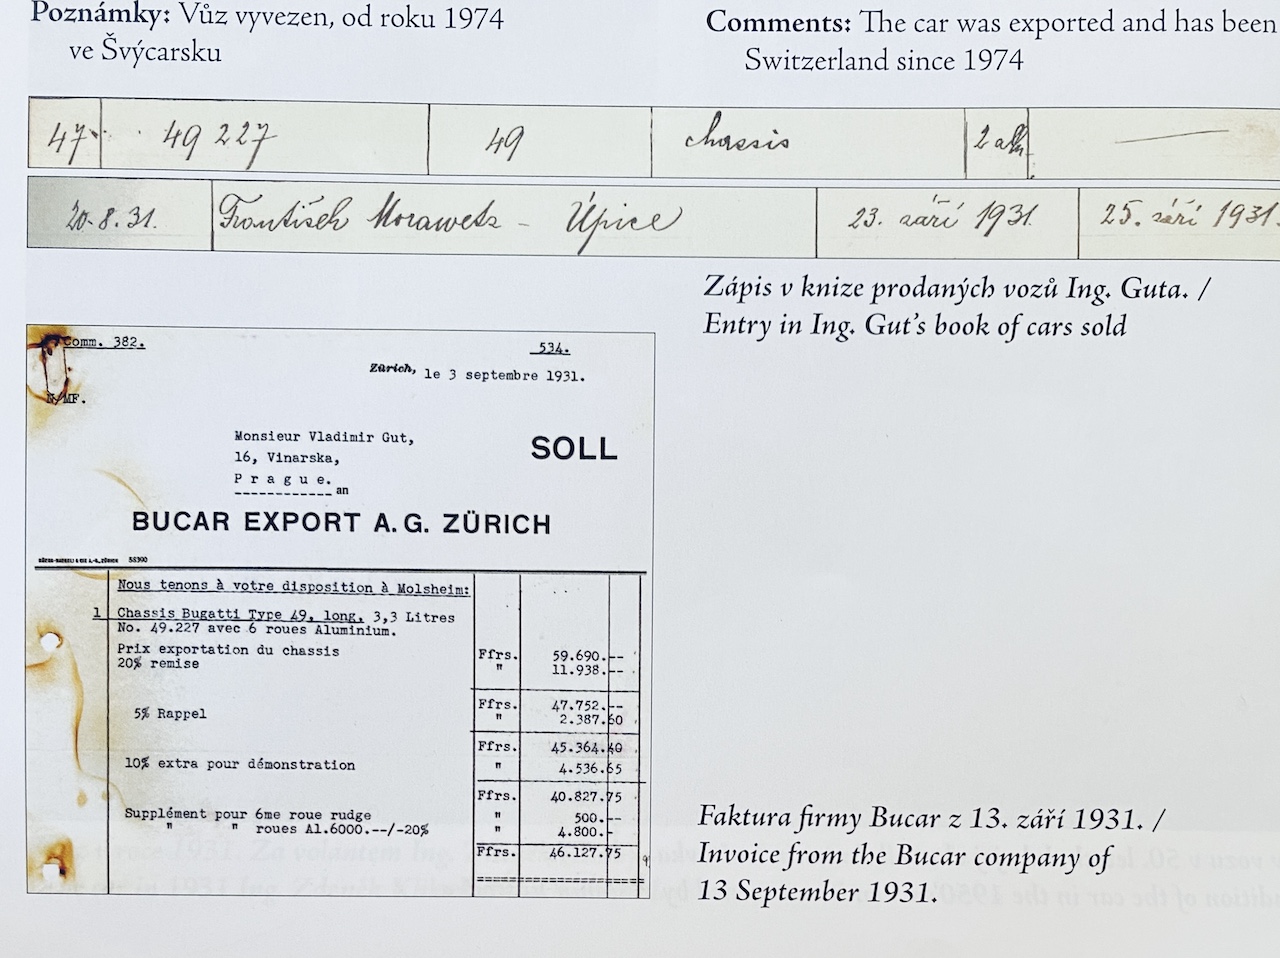 Poznámky: Vůz vyvezen, od roku 1974
ve Švýcarsku
Comments: The car was exported and has been
Switzerland since 1974
47. 49 227 49 chassis 2
20.8.31. František Morawetz - Úpice 23. září 1931. 25. září 1931.
Zápis v knize prodaných vozů Ing. Guta. /
Entry in Ing. Gut's book of cars sold
Comm. 382.
534.
Zürich, le 3 septembre 1931.
N/MF.
Monsieur Vladimir Gut,
16, Vinarska,
Prague.
an
SOLL
BUCAR EXPORT A.G. ZÜRICH
58390
Nous tenons à votre disposition à Molsheim:
1 Chassis Bugatti Type 49, long, 3,3 Litres
No. 49.227 avec 6 roues Aluminium.
Prix exportation du chassis Ffrs. 59.690.--
20% remise " 11.938.--
Ffrs. 47.752.--
5% Rappel " 2.387.60
Ffrs. 45.364.40
10% extra pour démonstration " 4.536.65
Ffrs. 40.827.75
Supplément pour 6me roue rudge " 500.--
" " roues Al.6000.--/-20% " 4.800.-
Ffrs. 46.127.75
Faktura firmy Bucar z 13. září 1931. /
Invoice from the Bucar company of
13 September 1931.